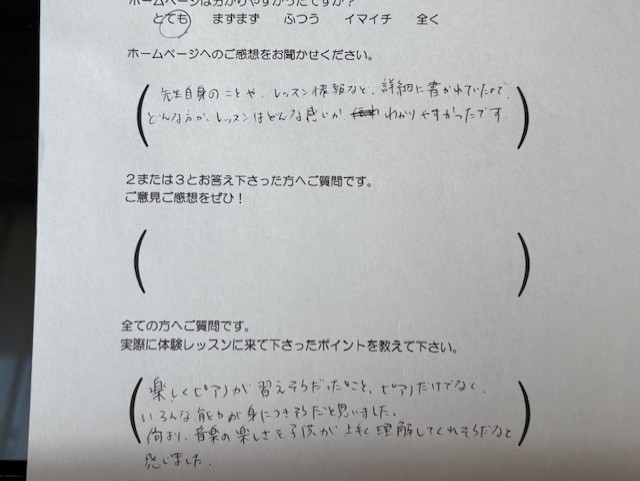 ホームページは分かりやすかったですか？
とても　まずまず　ふつう　イマイチ　全く
ホームページへのご感想をお聞かせください。
先生自身のことや、レッスン情報など、詳細に書かれていたので、
どんな方か、レッスンはどんな感じか、わかりやすかったです
２または３とお答え下さった方へご質問です。
ご意見ご感想をぜひ！
全ての方へご質問です。
実際に体験レッスンに来て下さったポイントを教えて下さい。
楽しくピアノが習えそうだったこと、ピアノだけでなく、
いろんな能力が身につきそうだと思いました。
何より、音楽の楽しさを子供が上手く理解してくれそうだなと
感じました。